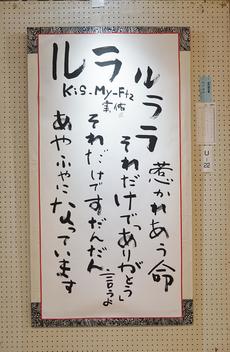 ルララ
惹かれあう命
それだけで「ありがとう」言うよ
それだけですだんだん
あやふやになっています
ルラ
Kis-My-Ft2
U-22